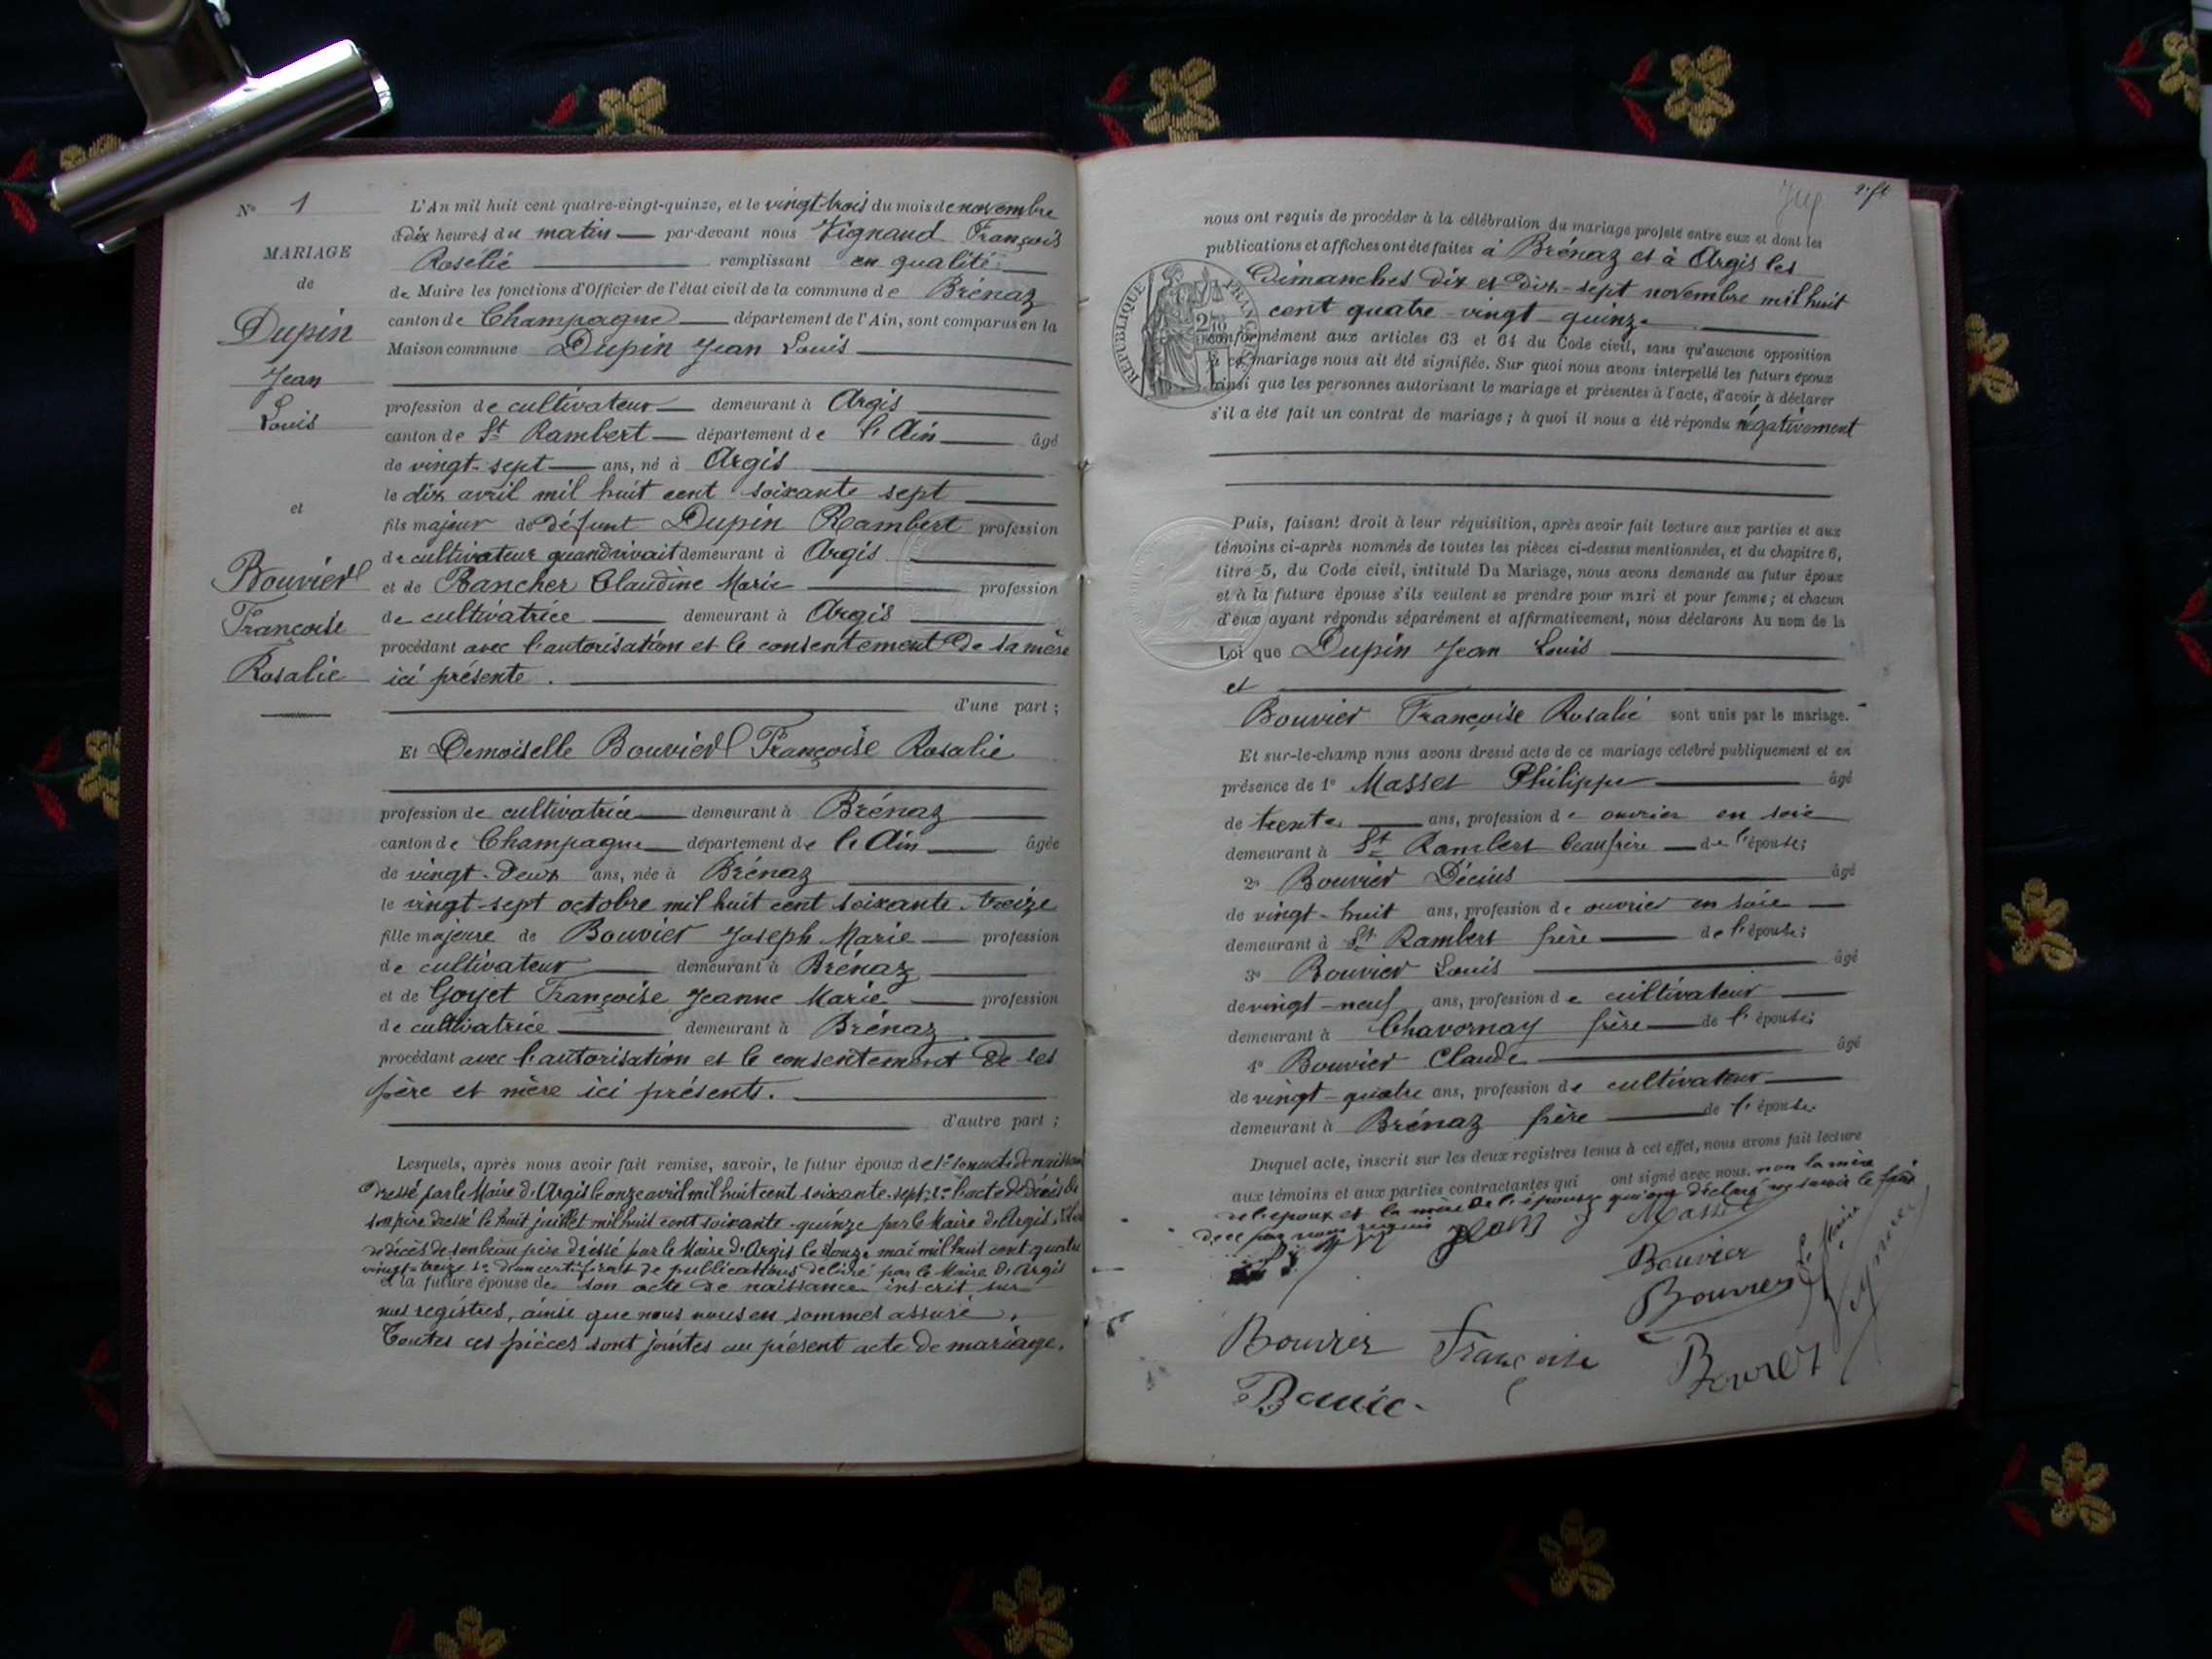 N° 1
MARIAGE
de
Dupin
Jean
Louis
et
Bouvier
Françoise
Rosalie
L'An mil huit cent quatre-vingt-quinze, et le vingt trois du mois de novembre
à dix heures du matin par-devant nous Vignand François
Rosélie remplissant en qualité
de Maire les fonctions d'Officier de l'état civil de la commune de Brénaz
canton de Champagne département de l'Ain, sont comparus en la
Maison commune Dupin Jean Louis
profession de cultivateur demeurant à Argis
canton de St Rambert département de l'Ain âgé
de vingt-sept ans, né à Argis
le dix avril mil huit cent soixante sept
fils majeur de défunt Dupin Rambert profession
de cultivateur quand vivait demeurant à Argis
et de Rancher Claudine Marie profession
de cultivatrice demeurant à Argis
procédant avec l'autorisation et le consentement de sa mère
ici présente.
d'une part;
Et Demoiselle Bouvier Françoise Rosalie
profession de cultivatrice demeurant à Brénaz
canton de Champagne département de l'Ain âgée
de vingt-deux ans, née à Brénaz
le vingt-sept octobre mil huit cent soixante-treize
fille majeure de Bouvier Joseph Marie profession
de cultivateur demeurant à Brénaz
et de Goyet Françoise Jeanne Marie profession
de cultivatrice demeurant à Brénaz
procédant avec l'autorisation et le consentement de ses
père et mère ici présents.
d'autre part;
Lesquels, après nous avoir fait remise, savoir, le futur époux de 1° son acte de naissance
dressé par le Maire d'Argis le onze avril mil huit cent soixante-sept; 2° l'acte de décès de
son père dressé le huit juillet mil huit cent soixante-quinze par le Maire d'Argis,
de décès de son beau père dressé par le Maire d'Argis le douze mai mil huit cent quatre
vingt-treize d'un certificat de publications délivré par le Maire d'Argis
et la future épouse de son acte de naissance inscrit sur
nos registres, ainsi que nous nous en sommes assuré.
Toutes ces pièces sont jointes au présent acte de mariage.
nous ont requis de procéder à la célébration du mariage projeté entre eux et dont les
publications et affiches ont été faites à Brénaz et à Argis les
Dimanches dix et dix-sept novembre mil huit
cent quatre-vingt-quinze
RÉPUBLIQUE FRANÇAISE
conformément aux articles 63 et 64 du Code civil, sans qu'aucune opposition
à ce mariage nous ait été signifiée. Sur quoi nous avons interpellé les futurs époux
ainsi que les personnes autorisant le mariage et présentes à l'acte, d'avoir à déclarer
s'il a été fait un contrat de mariage; à quoi il nous a été répondu négativement
Puis, faisant droit à leur réquisition, après avoir fait lecture aux parties et aux
témoins ci-après nommés de toutes les pièces ci-dessus mentionnées, et du chapitre 6,
titre 5, du Code civil, intitulé Du Mariage, nous avons demandé au futur époux
et à la future épouse s'ils veulent se prendre pour mari et pour femme; et chacun
d'eux ayant répondu séparément et affirmativement, nous déclarons Au nom de la
Loi que Dupin Jean Louis
et
Bouvier Françoise Rosalie sont unis par le mariage.
Et sur-le-champ nous avons dressé acte de ce mariage célébré publiquement et en
présence de 1° Masset Philippe âgé
de trente ans, profession de ouvrier en soie
demeurant à St Rambert beaufrère de l'épouse;
2° Bouvier Décius âgé
de vingt-huit ans, profession de ouvrier en soie
demeurant à St Rambert frère de l'épouse;
3° Bouvier Louis âgé
de vingt-neuf ans, profession de cultivateur
demeurant à Chavornay frère de l'épouse;
4° Bouvier Claude âgé
de vingt-quatre ans, profession de cultivateur
demeurant à Brénaz frère de l'épouse.
Duquel acte, inscrit sur les deux registres tenus à cet effet, nous avons fait lecture
aux témoins et aux parties contractantes qui ont signé avec nous, non la mère
de l'époux et la mère de l'épouse qui ont déclaré ne savoir le faire
de ce par nous requis
Masset
Bouvier
Bouvier
Le Maire
Bouvier Françoise